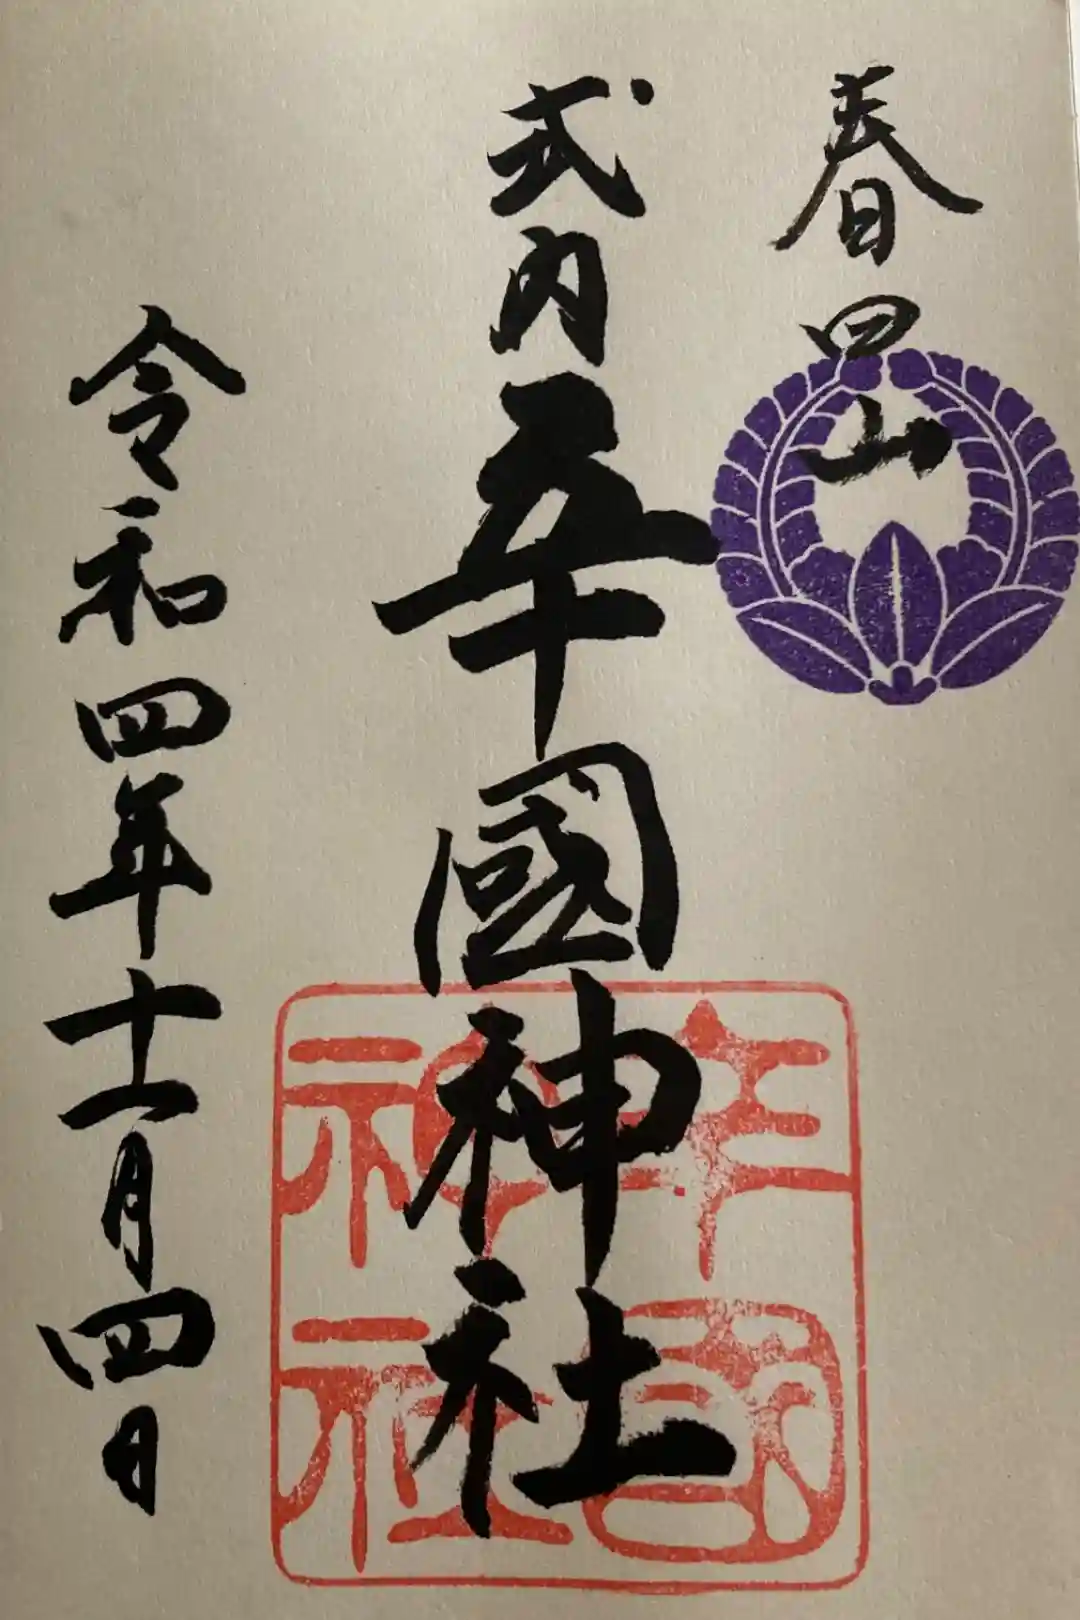 春日山
式内國神社
令和四年十一月四日
神社